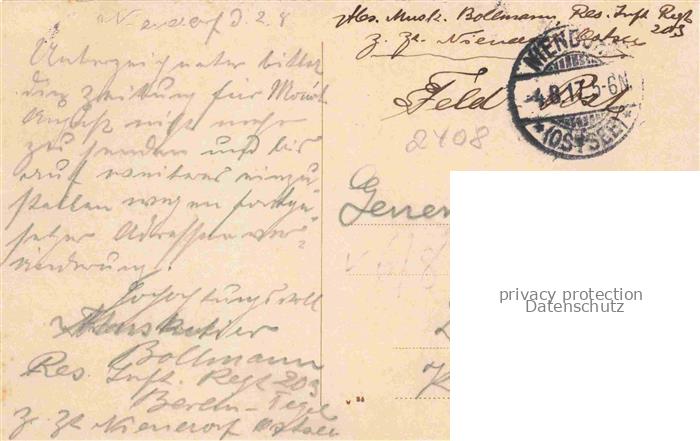 Niendorf d. 2. 8
Unterzeichneter bittet
die Zeitung für Monat
August nicht mehr
zu senden und bis
auf weiteres einzu-
stellen wegen fortge-
setzter Adressen ver-
änderung.
Hochachtungsvoll
Musketier
Bollmann
Res. Inft. Regt 203
Berlin-Tegel
z. Zt Niendorf Ostsee
Abs. Musk. Bollmann Res. Inft Regt
203
z. Zt. Niendorf Ostsee
Feld Post
NIENDORF
8.17. 5-6N
*(OSTSEE)*
2408
Gener
privacy protection
Datenschutz